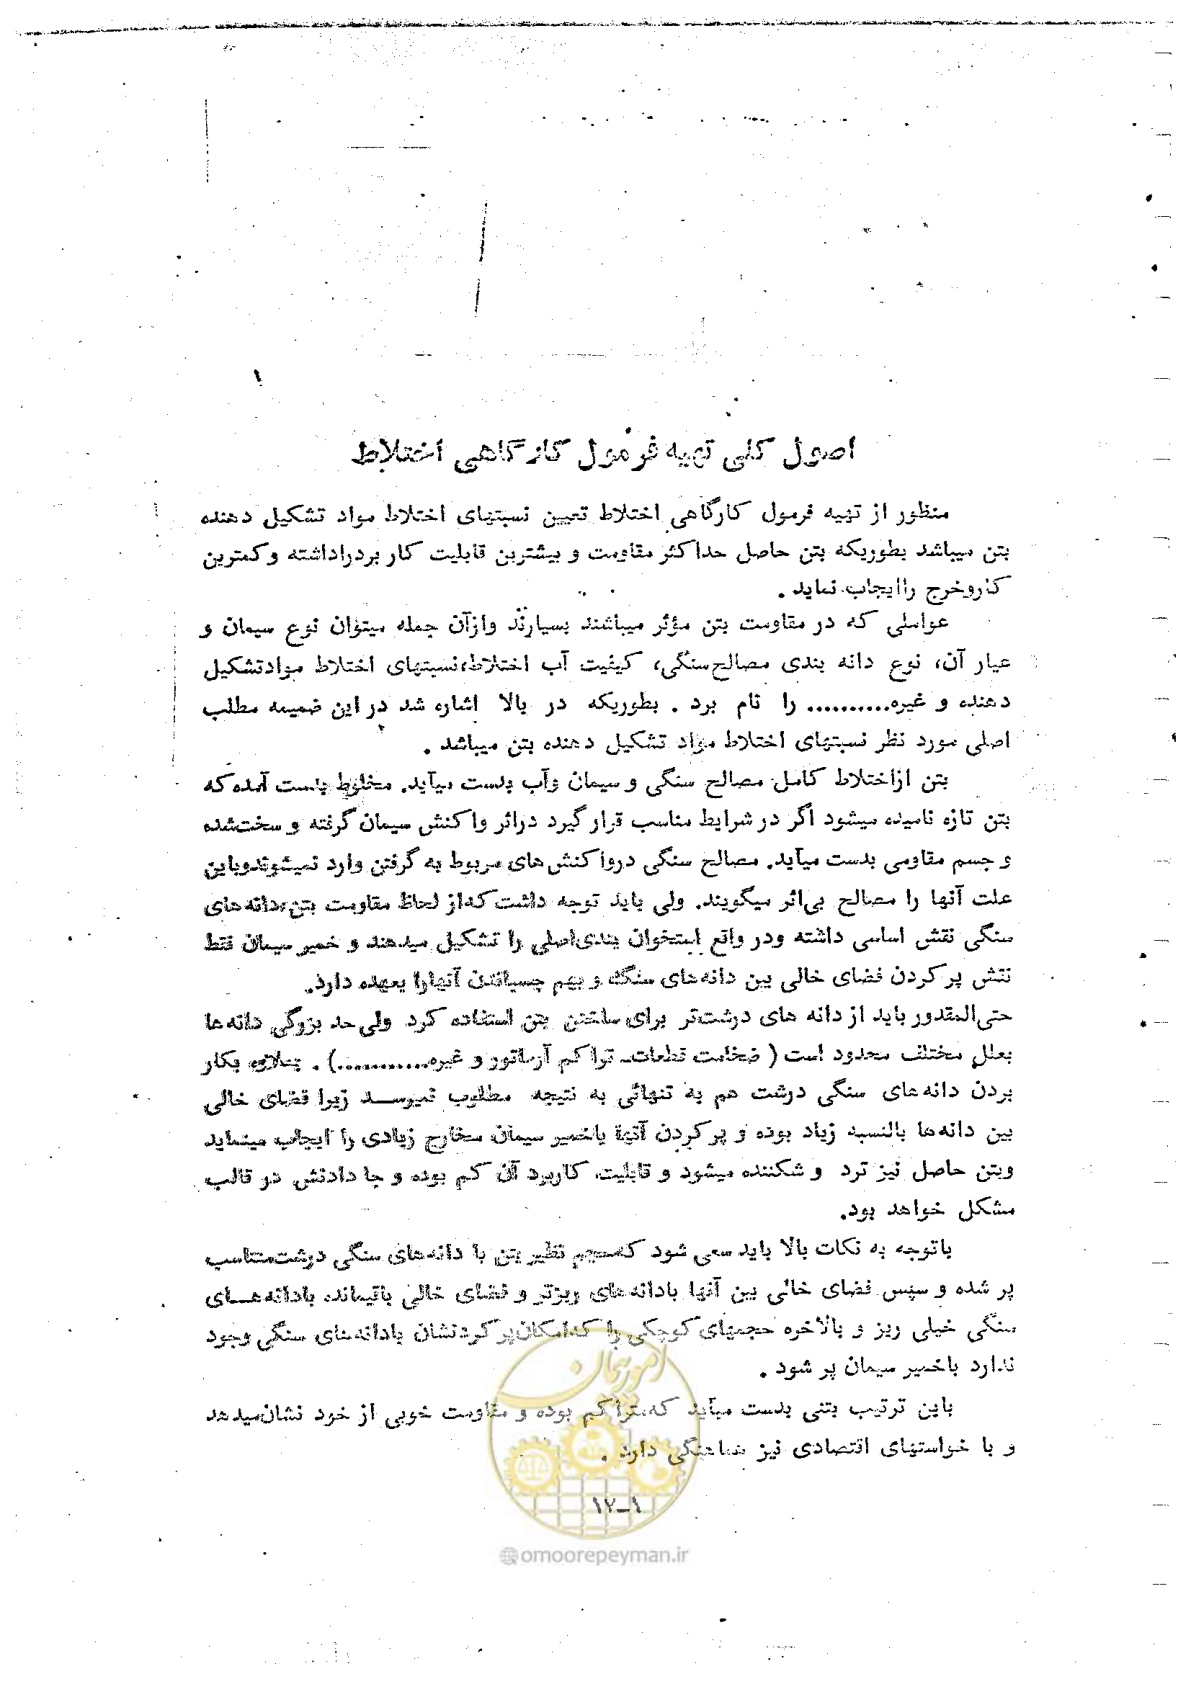 اصول کلی تهیه فرمول کارگاهی اختلاط
منظور از تهیه فرمول کارگاهی اختلاط تعیین نسبتهای اختلاط مواد تشکیل دهنده
بتن میباشد بطوریکه بتن حاصل حداکثر مقاومت و بیشترین قابلیت کار بردراداشته و کمترین
کاروخرج راایجاب نماید .
عواملی که در مقاومت بتن مؤثر میباشند بسیارند وازآن جمله میتوان نوع سیمان و
عیار آن، نوع دانه بندی مصالح‌سنگی، کیفیت آب اختلاط،نسبتهای اختلاط موادتشکیل
دهنده و غیره.......... را نام برد . بطوریکه در بالا اشاره شد در این ضمیمه مطلب
اصلی مورد نظر نسبتهای اختلاط مواد تشکیل دهنده بتن میباشد .
بتن ازاختلاط کامل مصالح سنگی و سیمان وآب بدست میآید. مخلوط بدست آمده‌که
بتن تازه نامیده میشود اگر در شرایط مناسب قرار گیرد دراثر واکنش سیمان گرفته و سخت‌شده
و جسم مقاومی بدست میآید. مصالح سنگی درواکنش‌های مربوط به گرفتن وارد نمیشوندوباین
علت آنها را مصالح بی‌اثر میگویند. ولی باید توجه داشت که‌از لحاظ مقاومت بتن،دانه‌های
سنگی نقش اساسی داشته ودر واقع استخوان بندی‌اصلی را تشکیل میدهند و خمیر سیمان فقط
نقش پر کردن فضای خالی بین دانه‌های سنگ و بهم چسباندن آنهارا بعهده دارد.
حتی‌المقدور باید از دانه های درشت‌تر برای ساختن بتن استفاده کرد ولی حد بزرگی دانه‌ها
بعلل مختلف محدود است ( ضخامت قطعات- تراکم آرماتور و غیره...........) . بعلاوه بکار
بردن دانه‌های سنگی درشت هم به تنهائی به نتیجه مطلوب نمیرسد زیرا فضای خالی
بین دانه‌ها بالنسبه زیاد بوده و پر کردن آنها باخمیر سیمان مخارج زیادی را ایجاب مینماید
وبتن حاصل نیز ترد و شکننده میشود و قابلیت کاربرد آن کم بوده و جا دادنش در قالب
مشکل خواهد بود.
باتوجه به نکات بالا باید سعی شود که‌حجم نظیر بتن با دانه‌های سنگی درشت‌متناسب
پر شده و سپس فضای خالی بین آنها بادانه‌های ریزتر و فضای خالی باقیمانده بادانه‌های
سنگی خیلی ریز و بالاخره حجمهای کوچکی را که‌امکان‌پر کردنشان بادانه‌های سنگی وجود
ندارد باخمیر سیمان پر شود .
باین ترتیب بتنی بدست میآید که‌متراکم بوده و مقاومت خوبی از خود نشان‌میدهد
و با خواستهای اقتصادی نیز هماهنگی دارد .
امور پیمان
۱-۱۲
@omoorepeyman.ir